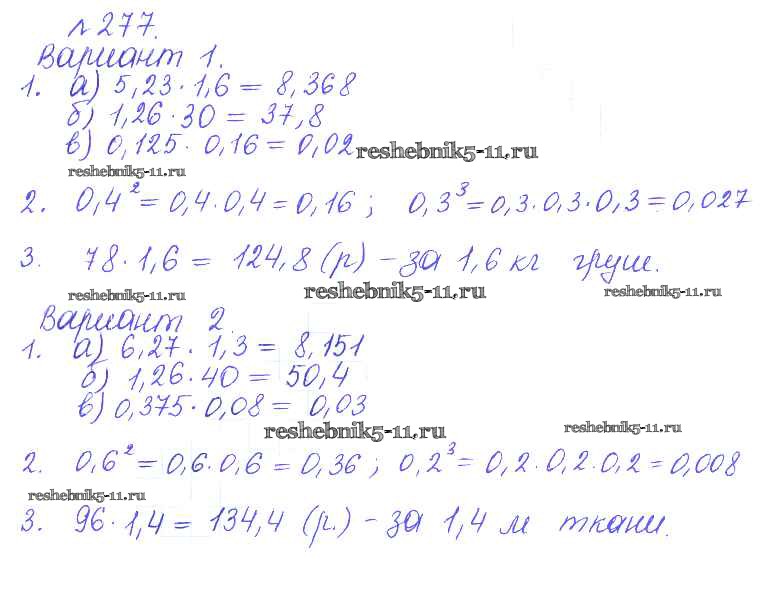 №277.
Вариант 1.
1. а) 5,23·1,6 = 8,368
б) 1,26·30 = 37,8
в) 0,125· 0,16 = 0,02
reshebnik5-11.ru
reshebnik5-11.ru
2. 0,4² = 0,4·0,4 = 0,16 ; 0,3³ = 0,3·0,3·0,3 = 0,027
3. 78·1,6 = 124,8 (р) – за 1,6 кг груш.
reshebnik5-11.ru reshebnik5-11.ru reshebnik5-11.ru
Вариант 2.
1. а) 6,27·1,3 = 8,151
б) 1,26·40 = 50,4
в) 0,375·0,08 = 0,03
reshebnik5-11.ru reshebnik5-11.ru
2. 0,6² = 0,6·0,6 = 0,36 ; 0,2³ = 0,2·0,2·0,2 = 0,008
reshebnik5-11.ru
3. 96·1,4 = 134,4 (р.) – за 1,4 м ткани.